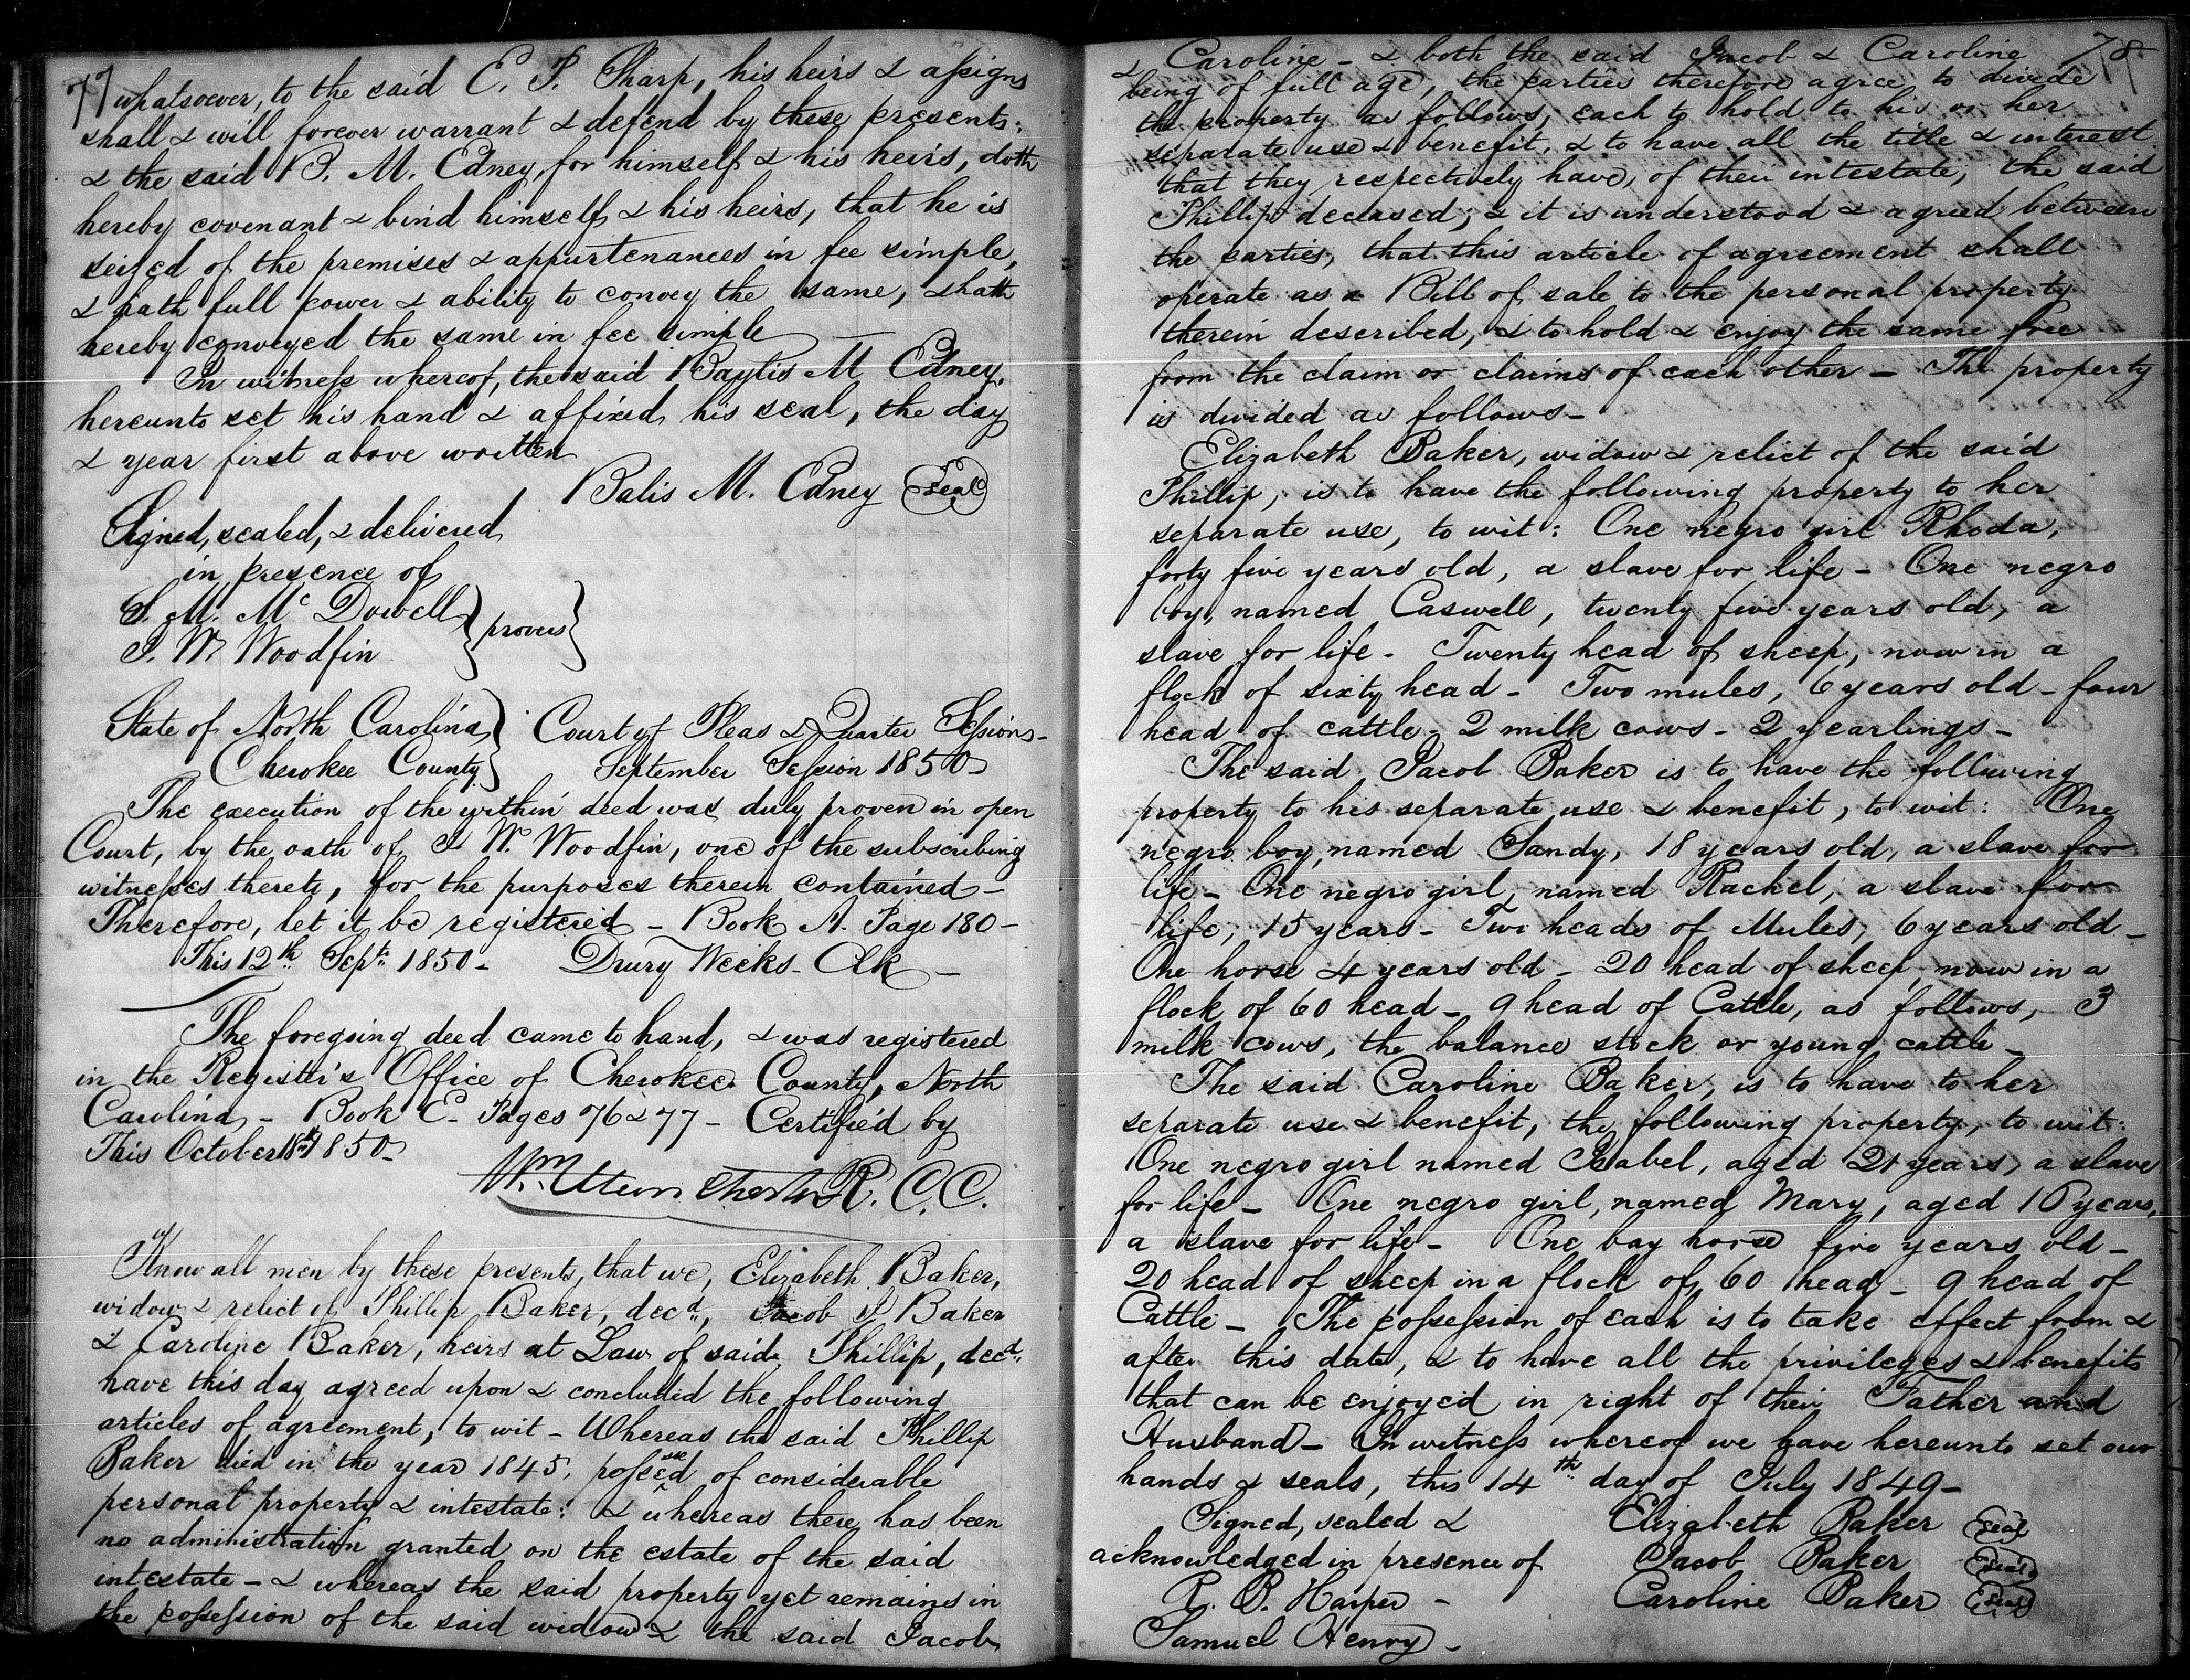 77
whatsoever, to the said E. P. Sharp, his heirs & assigns
shall & will forever warrant & defend by these presents:
& the said B. M. Edney, for himself & his heirs, doth
hereby covenant & bind himself & his heirs, that he is
seized of the premises & appurtenances in fee simple,
& hath full power & ability to convey the same, & hath
hereby conveyed the same in fee simple —
In witness whereof, the said Baylis M Edney,
hereunto set his hand & affixed his seal, the day
& year first above written
Balis M. Edney Seal
Signed, sealed, & delivered
in presence of
S. M. McDowell
J. W. Woodfin
} proves }
State of North Carolina } Court of Pleas & Quarter Sessions -
Cherokee County } September Session 1850 -
The execution of the within deed was duly proven in open
Court, by the oath of J. W. Woodfin, one of the subscribing
witnesses thereto, for the purposes therein contained -
Therefore, let it be registered - Book A. Page 180 -
This 12th Sept. 1850 - Drury Weeks - Clk -
The foregoing deed came to hand, & was registered
in the Register's Office of Cherokee County, North
Carolina - Book E - Pages 76 & 77 - Certified by
This October 18th 1850 -
Wm R. C. C.
Know all men by these presents, that we, Elizabeth Baker,
widow & relict of Phillip Baker, decd., Jacob Baker
& Caroline Baker, heirs at Law of said Phillip, decd.
have this day agreed upon & concluded the following
articles of agreement, to wit - Whereas the said Phillip
Baker died in the year 1845, possessed of considerable
personal property & intestate: & whereas there has been
no administration granted on the estate of the said
intestate - & whereas the said property yet remains in
the possession of the said widow & the said Jacob
78
& Caroline - & both the said Jacob & Caroline
being of full age, the parties therefore agree to divide
the property as follows, each to hold to his or her
separate use & benefit, & to have all the title & interest
that they respectively have, of their intestate, the said
Phillip deceased; & it is understood & agreed between
the parties, that this article of agreement shall
operate as a Bill of sale to the personal property
therein described, & to hold & enjoy the same free
from the claim or claims of each other - The property
is divided as follows -
Elizabeth Baker, widow & relict of the said
Phillip, is to have the following property to her
separate use, to wit: One negro girl Rhoda,
forty five years old, a slave for life - One negro
boy, named Caswell, twenty five years old, a
slave for life - Twenty head of sheep, now in a
flock of sixty head - Two mules, 6 years old - four
head of cattle - 2 milk cows - 2 yearlings -
The said Jacob Baker is to have the following
property to his separate use & benefit, to wit: One
negro boy, named Sandy, 18 years old, a slave for
life - One negro girl, named Rachel, a slave for
life, 15 years - Two heads of Mules, 6 years old -
One horse 4 years old - 20 head of sheep, now in a
flock of 60 head - 9 head of Cattle, as follows, 3
milk cows, the balance stock or young cattle -
The said Caroline Baker, is to have to her
separate use & benefit, the following property, to wit:
One negro girl named Isabel, aged 21 years, a slave
for life - One negro girl, named Mary, aged 10 years,
a slave for life - One bay horse five years old -
20 head of sheep in a flock of 60 head - 9 head of
Cattle - The possession of each is to take effect from &
after this date, & to have all the privileges & benefits
that can be enjoyed in right of their Father and
Husband - In witness whereof we have hereunto set our
hands & seals, this 14th day of July 1849 -
Signed, sealed & Elizabeth Baker Seal
acknowledged in presence of Jacob Baker Seal
R. B. Harper - Caroline Baker Seal
Samuel Henry -